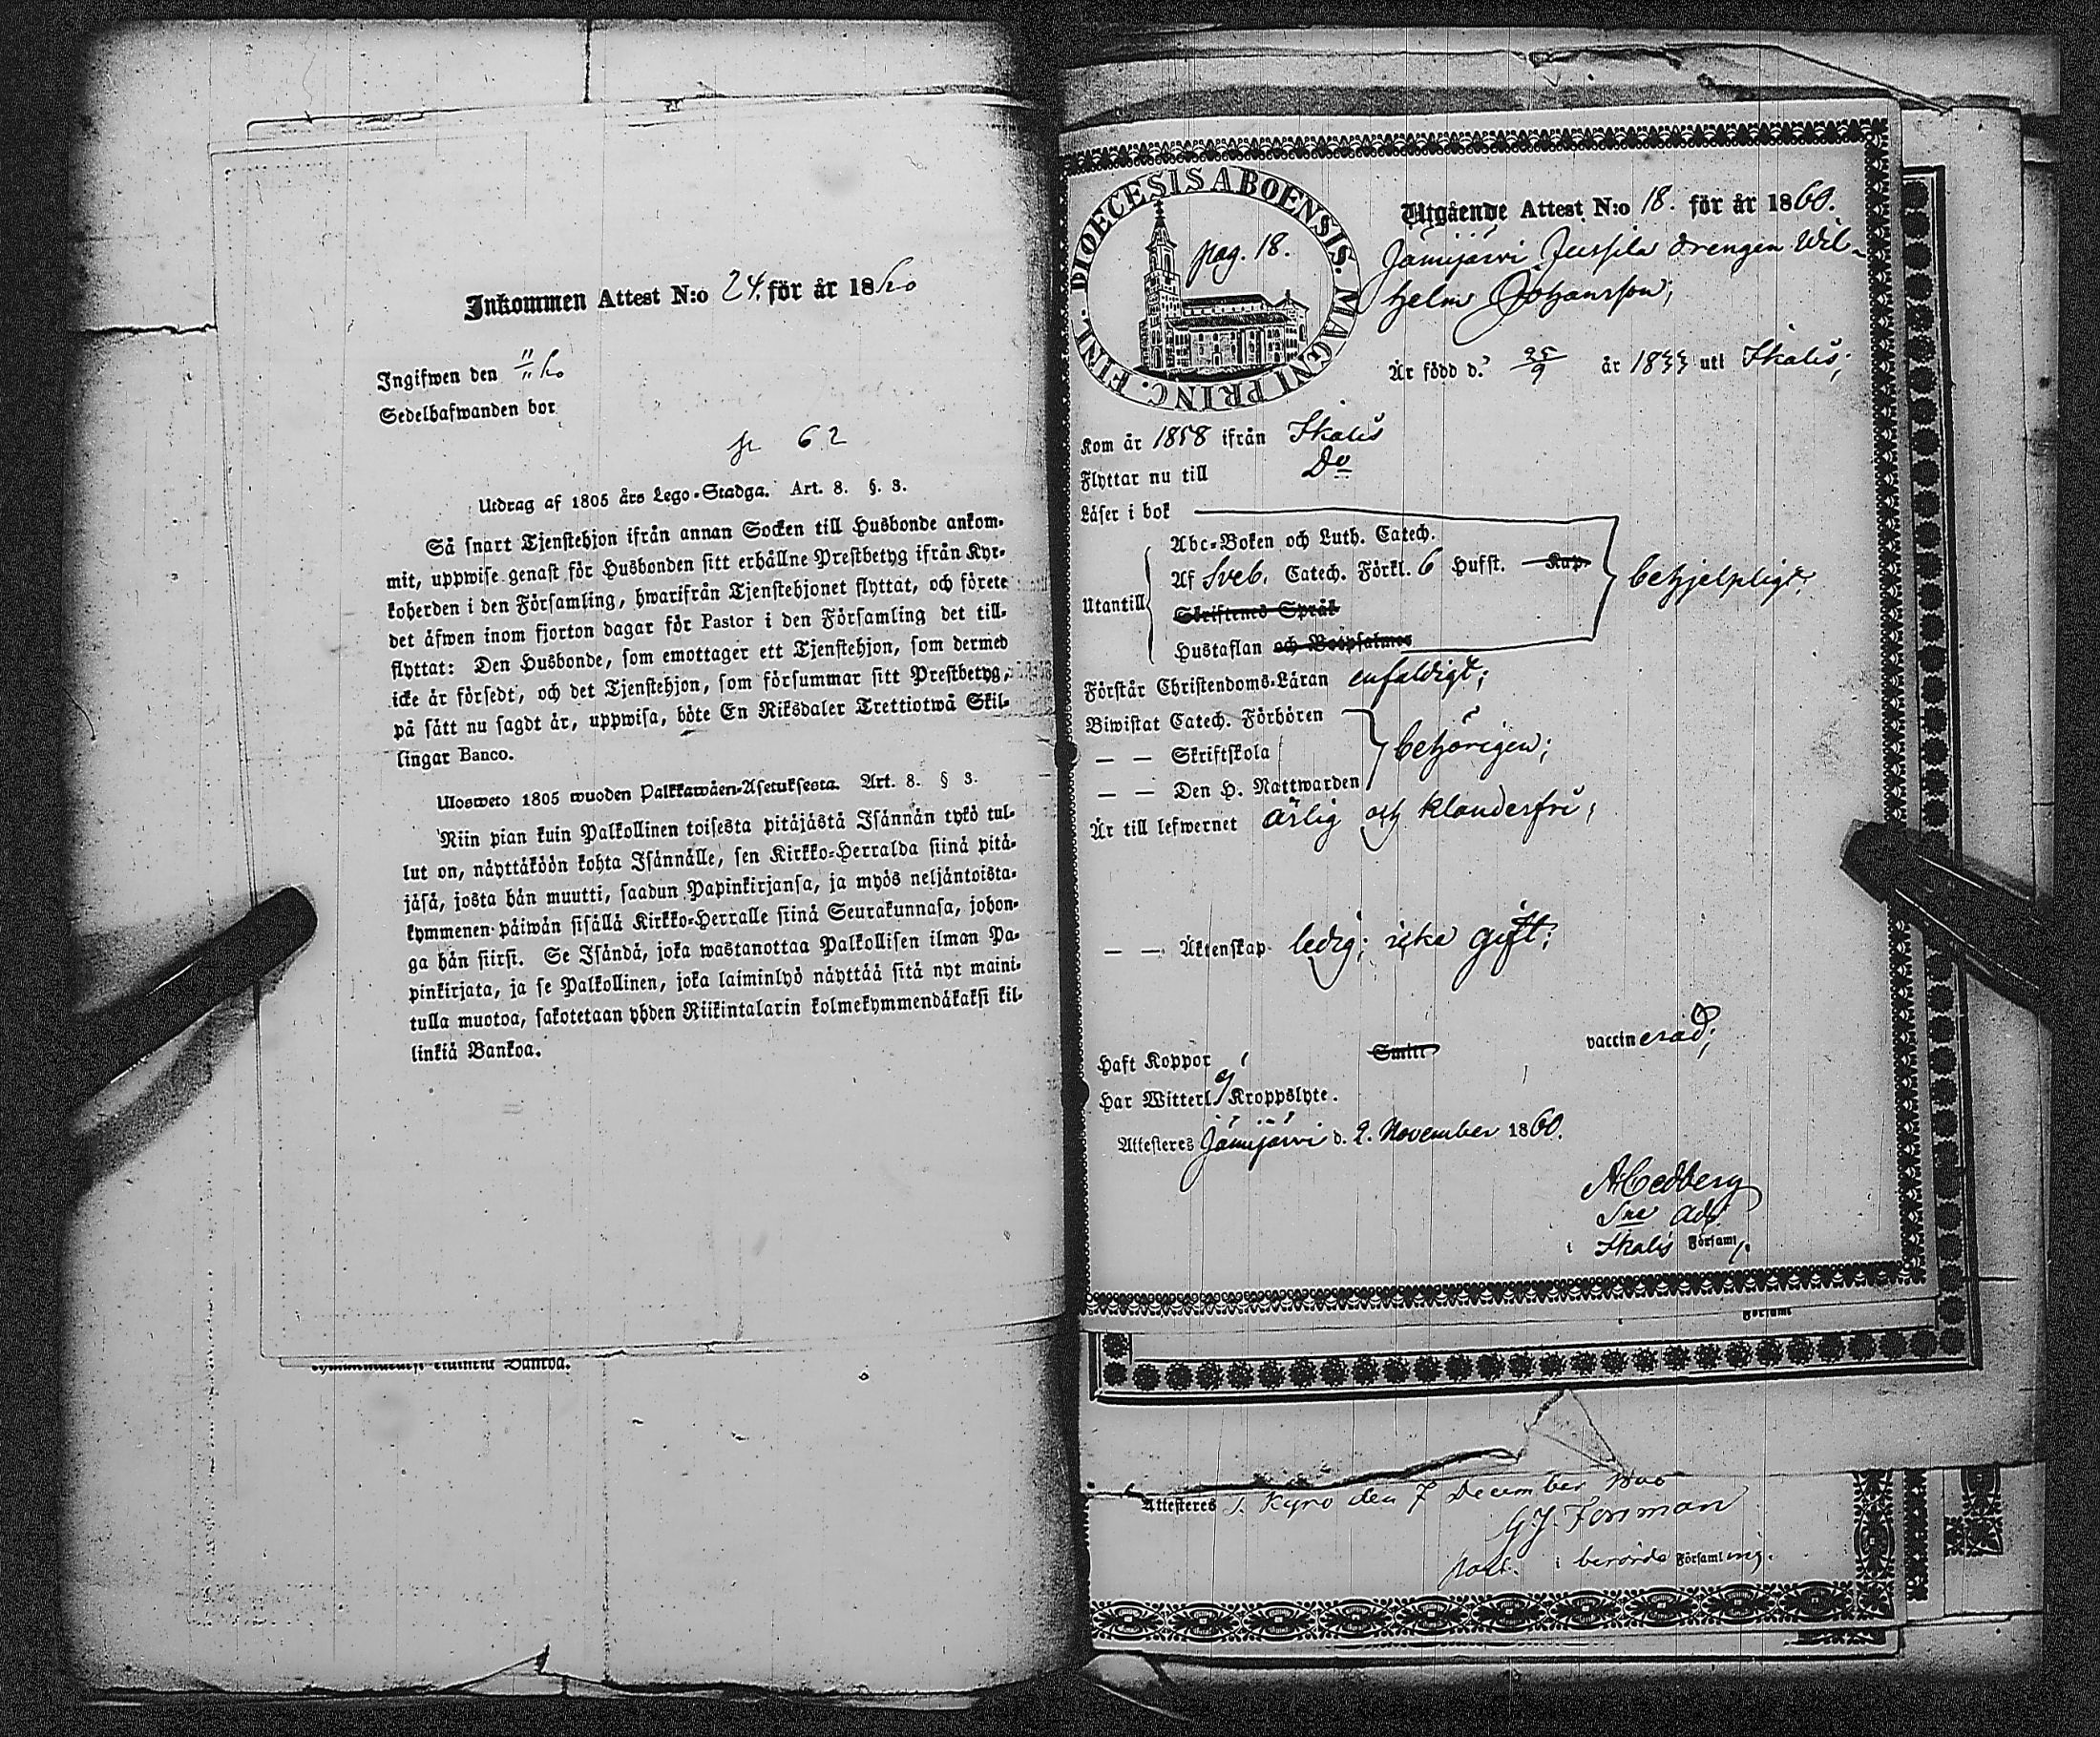 Inkommen Attest N:o 24. för år 1860
Ingifwen den 11/11 60
Sedelhafwanden bor
62
Utdrag af 1805 års Lego-Stadga. Art. 8. §. 3.
Så snart Tjenstehjon ifrån annan Socken till Husbonde ankom-
mit, uppwise genast för Husbonden sitt erhållne Prestbetyg ifrån Kyr-
koherden i den Församling, hwarifrån Tjenstehjonet flyttat, och förete
det åfwen inom fjorton dagar för Pastor i den Församling det till-
flyttat: Den Husbonde, som emottager ett Tjenstehjon, som dermed
icke är försedt, och det Tjenstehjon, som försummar sitt Prestbetyg,
på sätt nu sagdt är, uppwisa, böte En Riksdaler Trettiotwå Skil-
lingar Banco.
Ulosweto 1805 wuoden Palkkawäen-Asetuksesta. Art. 8. § 3.
Niin pian kuin Palkollinen toisesta pitäjästä Isännän tykö tul-
lut on, näyttäköön kohta Isännälle, sen Kirkko-Herralda siinä pitä-
jäsä, josta hän muutti, saadun Papinkirjansa, ja myös neljäntoista-
kymmenen päiwän sisällä Kirkko-Herralle siinä Seurakunnasa, johon-
ga hän siirsi. Se Isändä, joka wastanottaa Palkollisen ilman Pa-
pinkirjata, ja se Palkollinen, joka laiminlyö näyttää sitä nyt maini-
tulla muotoa, sakotetaan yhden Riikintalarin kolmekymmendäkaksi kil-
linkiä Bankoa.
Bankoa.
DIOECESIS ABOENSIS. MAGNI PRINC. FINL.
pag. 18.
Utgående Attest N:o 18. för år 1860.
Jämijärvi Jussila drengen Wil-
helm Johansson;
Är född d. 25/9 år 1833 uti Ikalis;
Kom år 1858 ifrån Ikalis
Flyttar nu till Do
Läser i bok
Abc-Boken och Luth. Catech.
Utantill Af Sveb. Catech. Förkl. 6 Hufst. Kap behjelpligt.
Skriftenes Språk
Hustaflan och Botpsalmer
Förstår Christendoms-Läran enfaldigt;
Biwistat Catech. Förhören
— — Skriftskola behörigen;
— — Den H. Nattwarden
Är till lefwernet ärlig och klanderfri;
— — Äktenskap ledig; icke gift;
Haft Koppor Smitt vaccinerad;
Har Witterl. ej Kroppslyte.
Attesteres Jämijärvi d. 2. November 1860.
A Cedberg
i Ikalis Församl.
Församl
Attesteres i Kyro den 7 December
G. J. Forsman
i berörde Församling.